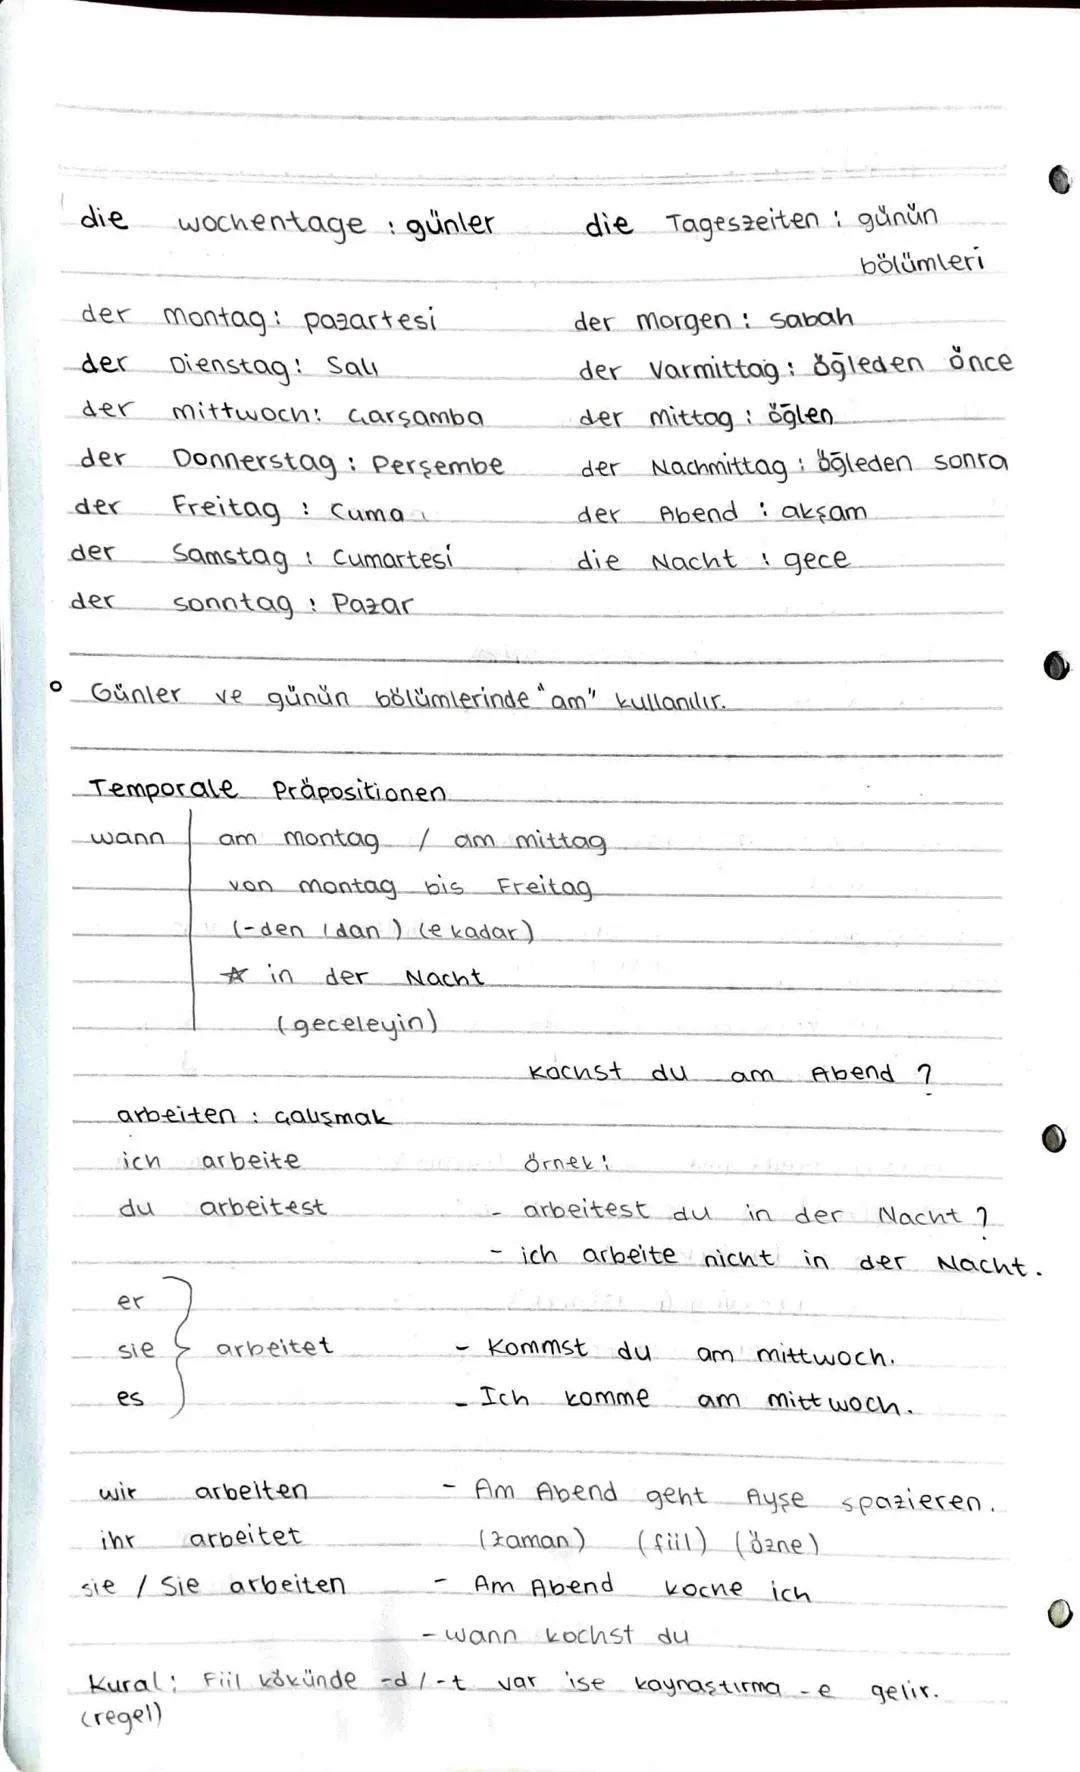 die wochentage : günler
die Tageszeiten : günün
bölümleri
der montag : pazartesi
der Dienstag : Salı
der mittwoch : Çarşamba
der Donnerstag : Perşembe
der Freitag : Cuma
der Samstag : Cumartesi
der sonntag : Pazar
der morgen : sabah
der Varmittag : öğleden önce
der mittag : öğlen
der Nachmittag : öğleden sonra
der Abend : akşam
die Nacht : gece
° Günler ve günün bölümlerinde "am" kullanılır.
Temporale Präpositionen
wann
am montag / am mittag
von montag bis Freitag
(-den / dan) (e kadar)
☆ in der Nacht
(geceleyin)
kochst du am Abend ?
arbeiten : çalışmak
ich arbeite
du arbeitest
er
sie } arbeitet
es
wir arbeiten
ihr arbeitet
sie / Sie arbeiten
örnek :
- arbeitest du in der Nacht ?
- ich arbeite nicht in der Nacht.
- Kommst du am mittwoch.
- Ich komme am mittwoch.
- Am Abend geht Ayşe spazieren.
(zaman) (fiil) (özne)
- Am Abend koche ich
- wann kochst du
Kural : Fiil kökünde -d / -t var ise kaynaştırma -e gelir.
(regel)